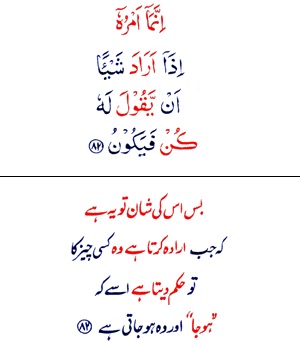 اِنَّمَاۤ اَمْرُهٗۤ
اِذَاۤ اَرَادَ شَيْـًٔا
اَنْ يَّقُوْلَ لَهٗ
كُنْ فَيَكُوْنُ ﴿۸۲﴾
بس اس کی شان تو یہ ہے
کہ جب ارادہ کرتا ہے وہ کسی چیز کا
تو حکم دیتا ہے اسے کہ
”ہوجا“ اور وہ ہو جاتی ہے ﴿۸۲﴾